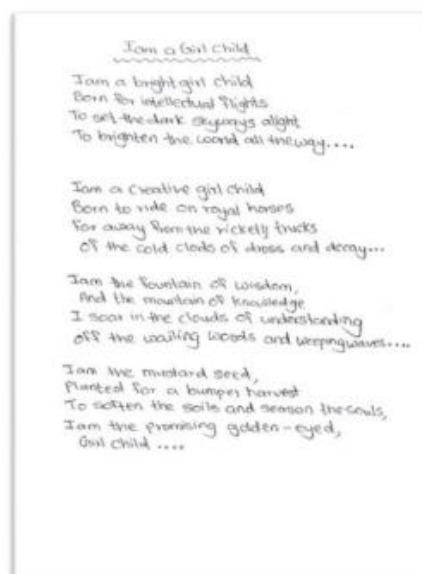 I am a Girl Child
I am a bright girl child
Born for intellectual flights
To set the dark skyways alight
To brighten the world all the way....
I am a creative girl child
Born to ride on royal horses
Far away from the rickety trucks
Of the cold clods of dross and decay...
I am the fountain of wisdom,
And the mountain of knowledge
I soar in the clouds of understanding
Off the wailing woods and weeping waves....
I am the mustard seed,
Planted for a bumper harvest
To soften the soils and season the souls,
I am the promising golden-eyed,
Girl child ....